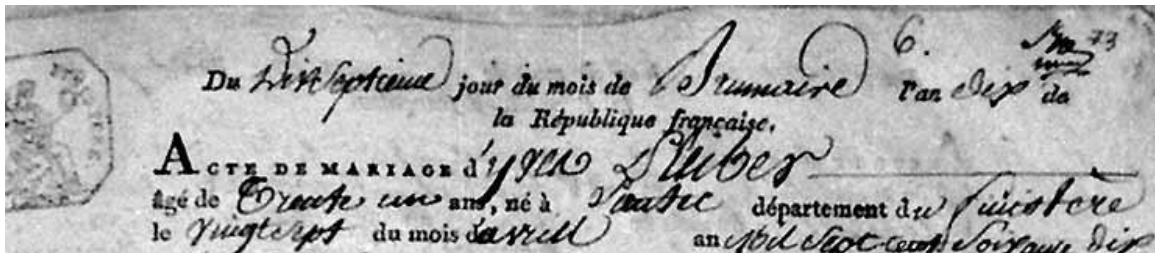 6. 73
Du Dixseptieme jour du mois de Brumaire l'an dix de
la République française.
ACTE DE MARIAGE d'yven
âgé de Trente un ans, né à Santec département du finistère
le vingt sept du mois d'avril an Mil Sept cent Soixante dix